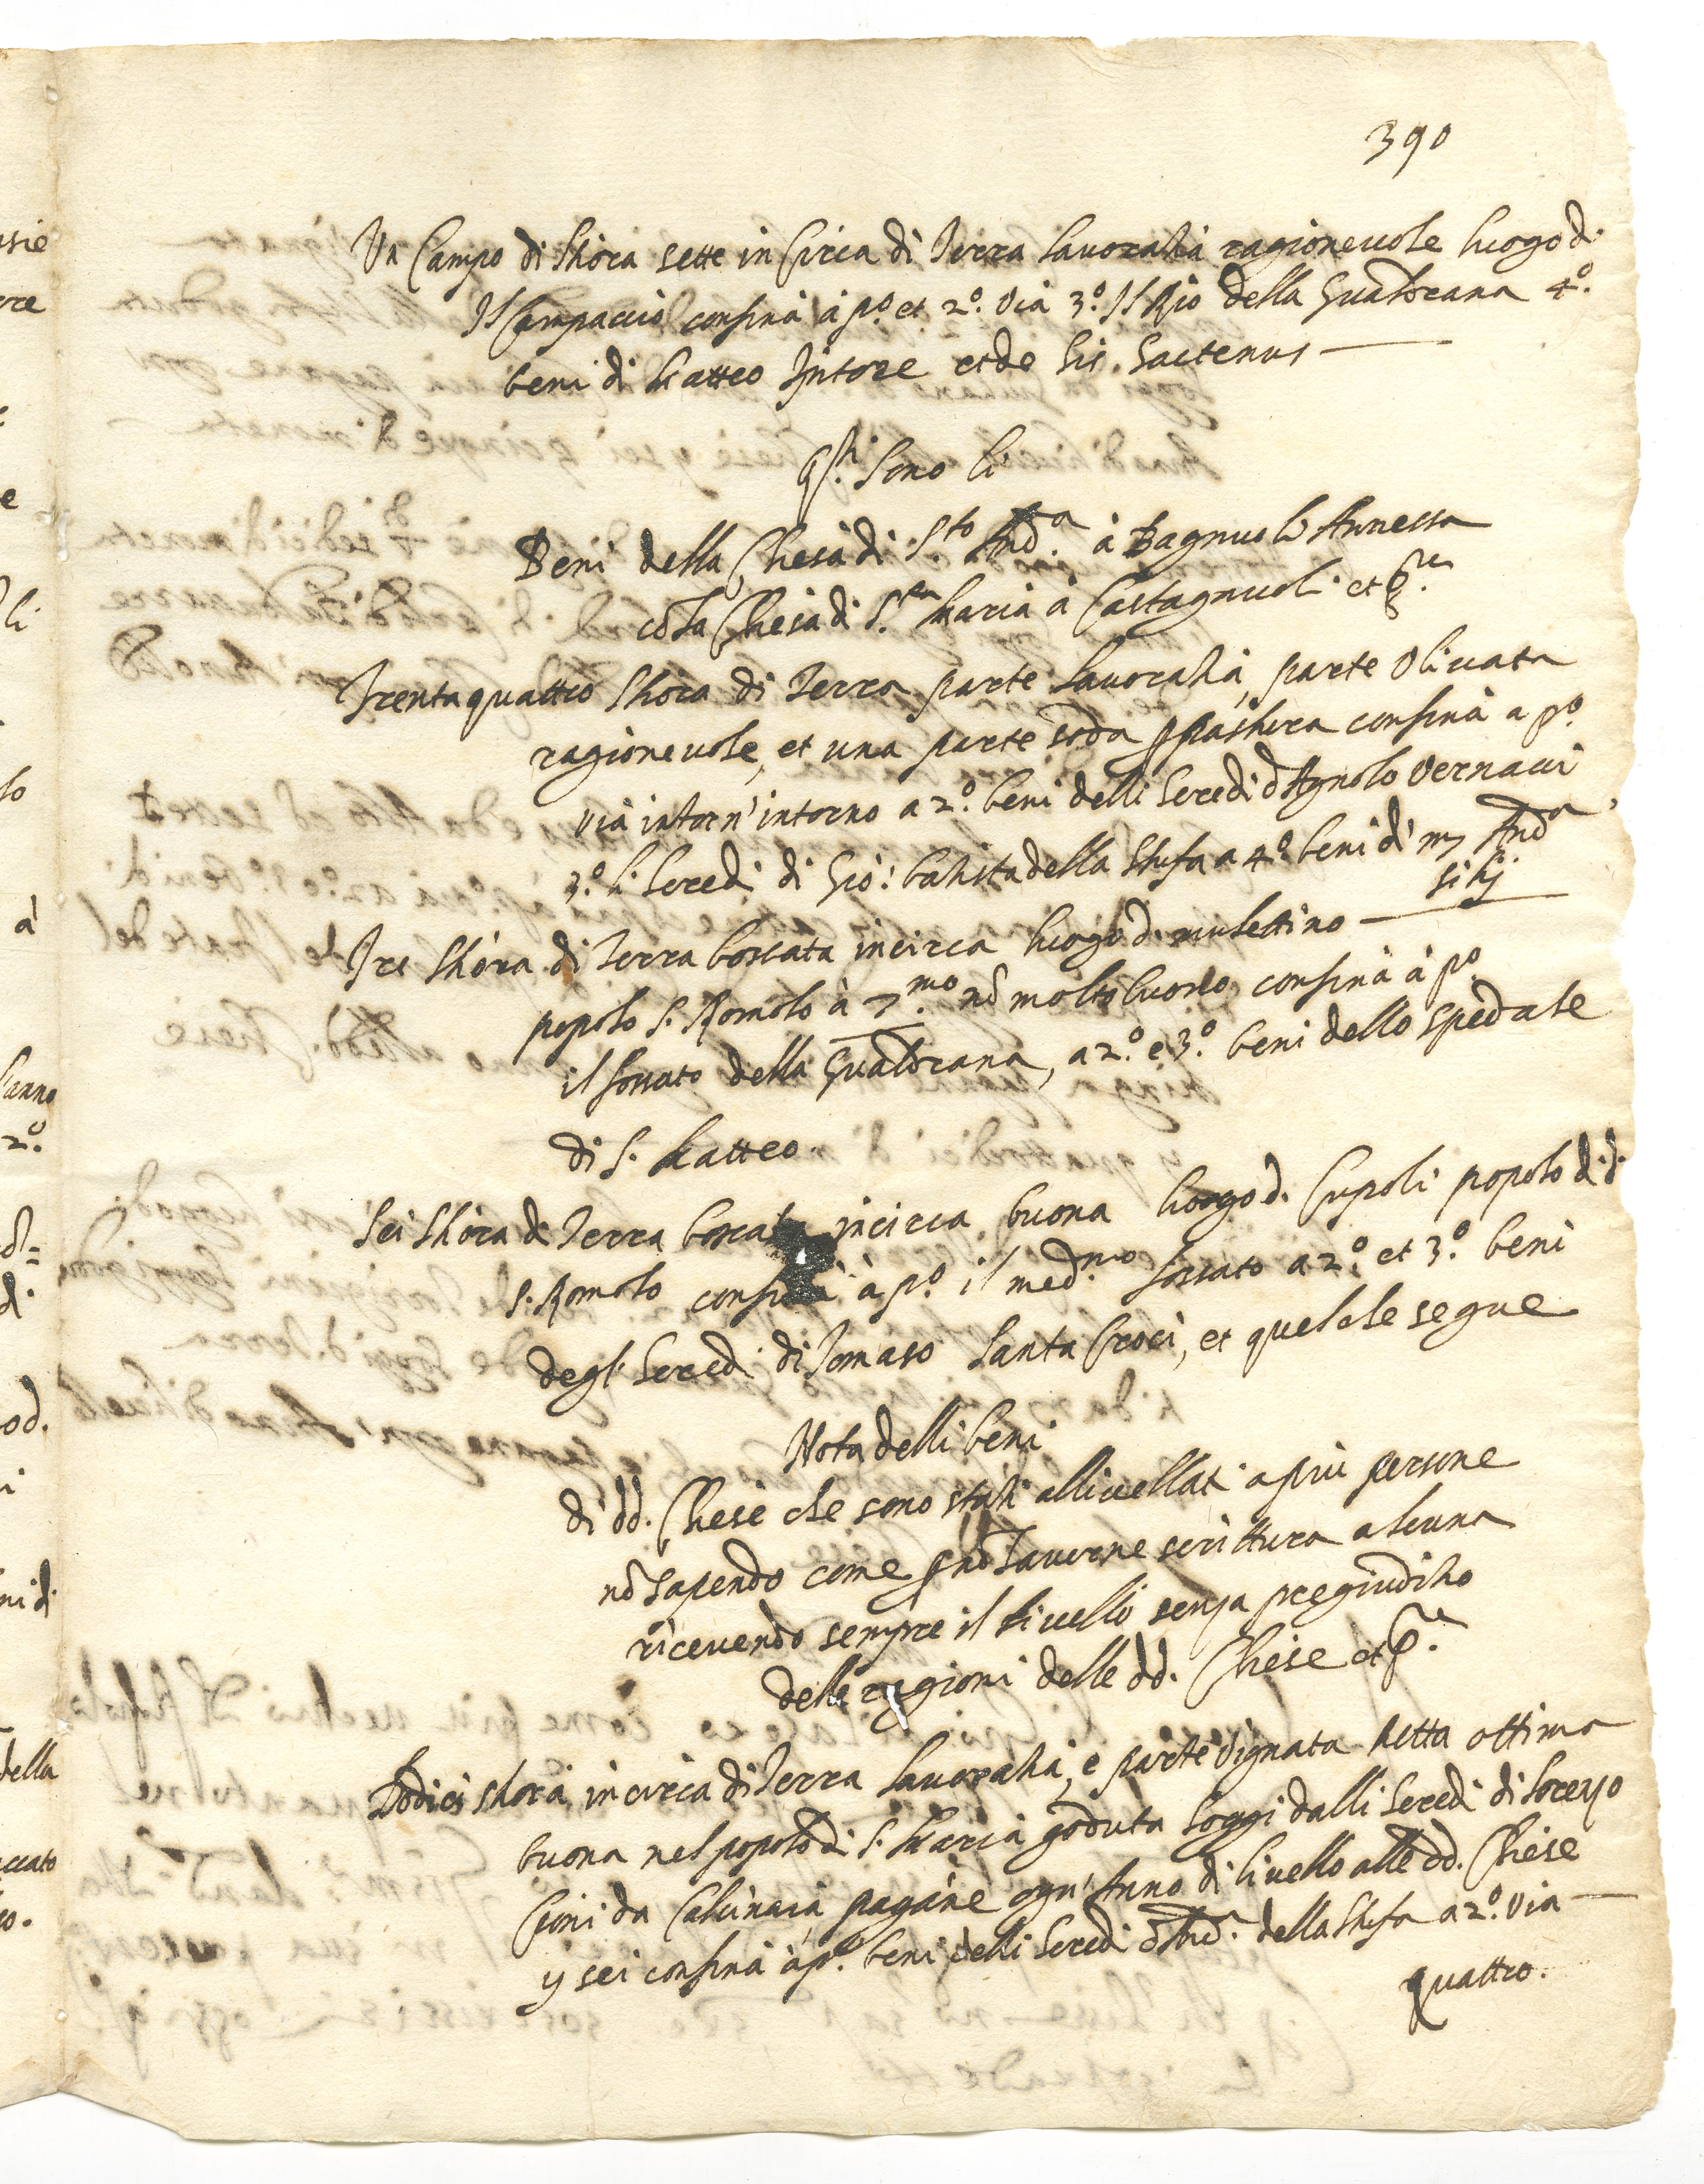 390
Un Campo di Stiora sette in Circa di Terra Lavoratia ragionevole luogo d.
Il Campaccio confina à p.º et 2.º via 3.º Il Rio della Gualdrana 4.º
beni di Matteo et de sic hactenus
Q.sti sono li
Beni della Chiesa di S.to And.a à Bagnuolo Annessa
cõ la Chiesa di S.ta Maria à Castagnuoli et p.
Trentaquattro Stiora di Terra parte Lavoratia, parte Olivata
ragionevole, et una parte soda p pastura confina a p.º
via intorn' intorno a 2.º beni delli Heredi d'Agnolo Vernacci
3.º li Heredi di Gio: batista della Stufa a 4.º beni di m And.a
Tre Stiora di Terra boscata incirca luogo d. mulettino
popolo S. Romolo à 7.mo nõ molto buono confina à p.º
il fossato della Gualdrana, a 2.º e 3.º beni dello spedale
di S. Matteo
Sei Stiora di Terra boscata incirca buona luogo d. Cupoli popolo d. d.
S. Romolo confina à p.º il med.mo fossato a 2.º et 3.º beni
degl' Heredi di Tomaso Santa Croci, et quel che segue
Nota delli beni
di dd. Chiese che sono stati allivellati a più persone
nõ sapendo come p nõ haverne scrittura alcuna
ricevendo sempre il livello senza pregiuditio
delle ragioni delle dd. Chiese et p.
Dodici stiora in circa di Terra Lavoratia, e parte vignata netta ottima
buona nel popolo di S. Maria goduta hoggi dalli Heredi di Lorenzo
Cioni da Calcinaia pagane ogn' Anno di livello alle dd. Chiese
sei confina à p.º beni delli Heredi d'And.a della Stufa a 2.º via
quattro.